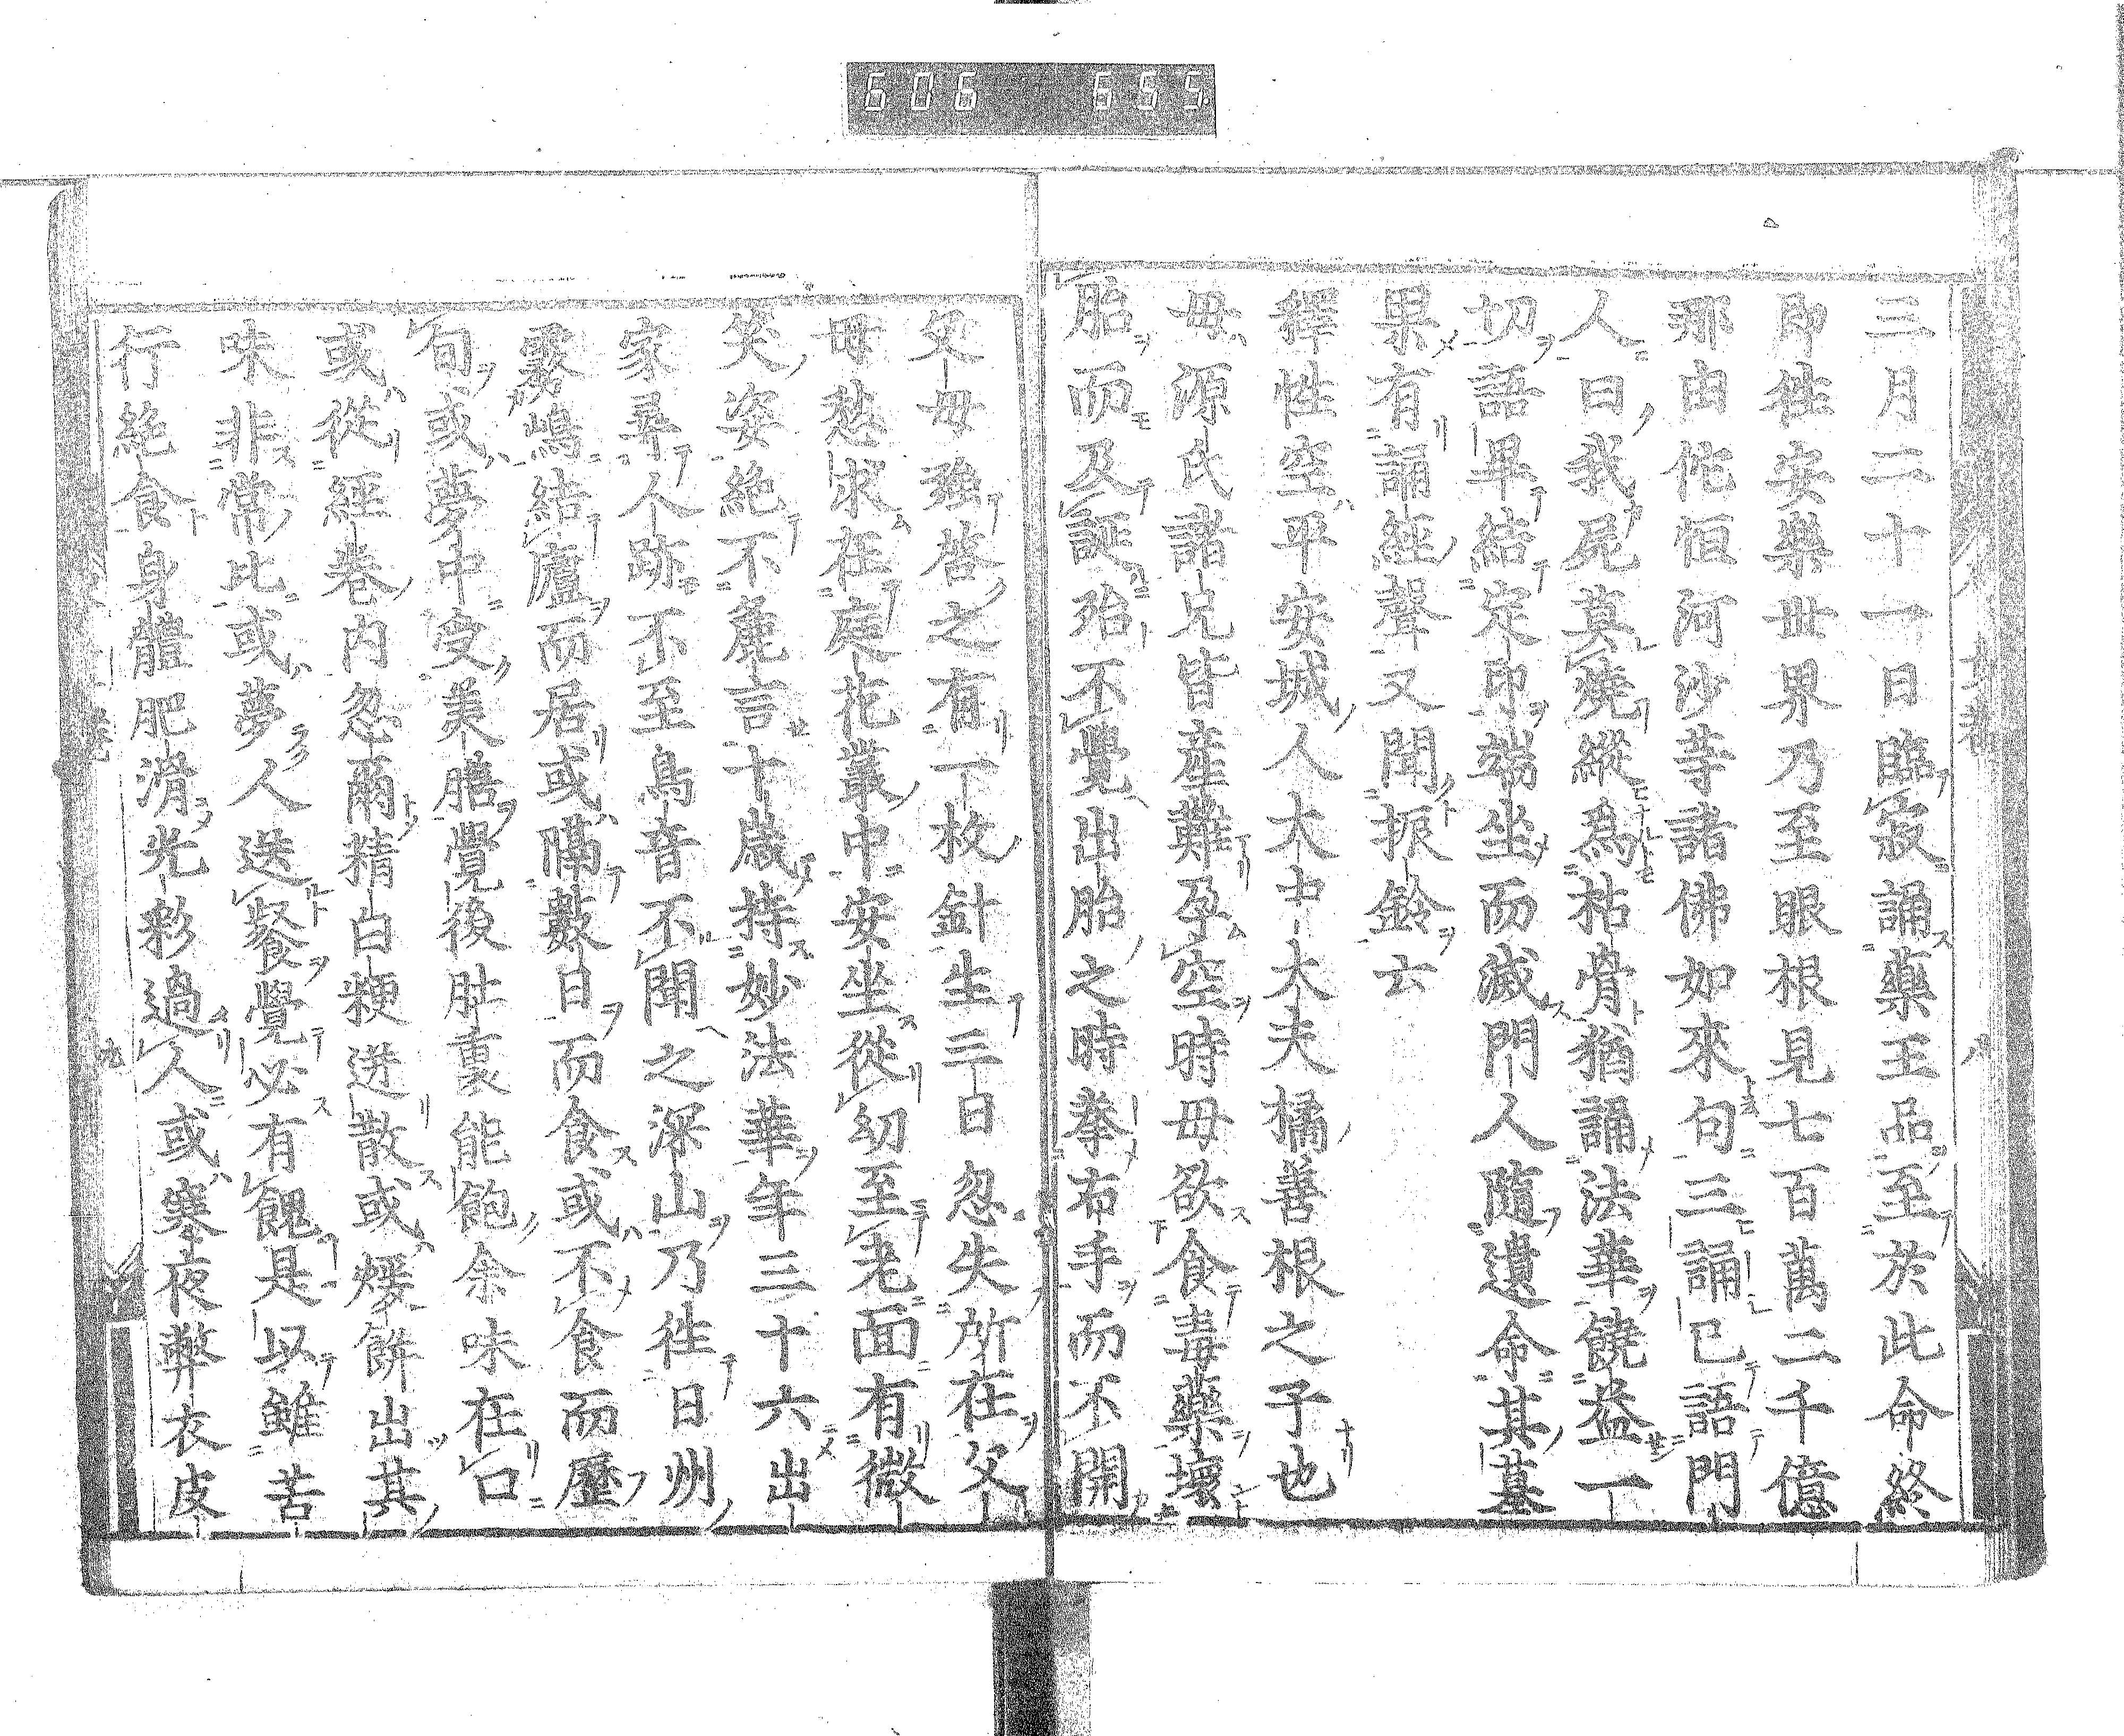 606 655
三月二十一日臨寂誦藥王品至於此命終
即往安樂世界乃至眼根見七百萬二千億
那由佗恒河沙等諸佛如來句三誦已語門
人曰我屍莫燒縱爲枯骨猶誦法華饒益一
切語畢結定印端坐而滅門人隨遺命其墓
果有誦經聲又聞振鈴云
釋性空平安城人大中大夫橘善根之子也
母源氏諸兄皆產難孕空時母欲食毒藥壞
胎而及誕殆不覺出胎之時拳布手而不開
父母強啓之有一枚針生三日忽失所在父
母愁求在庭花叢中安坐從幼至老面有微
笑姿絶不麁言十歲持妙法華年三十六出
家尋人跡不至鳥音不聞之深山乃往日州
霧嶋結廬而居或隔數日而食或不食而歷
旬或夢中受美膳覺後肚裏能飽余味在口
或從經卷内忽爾精白粳迸散或煖餅出其
味非常比或夢人送餐覺必有餽是以雖苦
行絶食身體肥滑光彩過人或寒夜弊衣皮